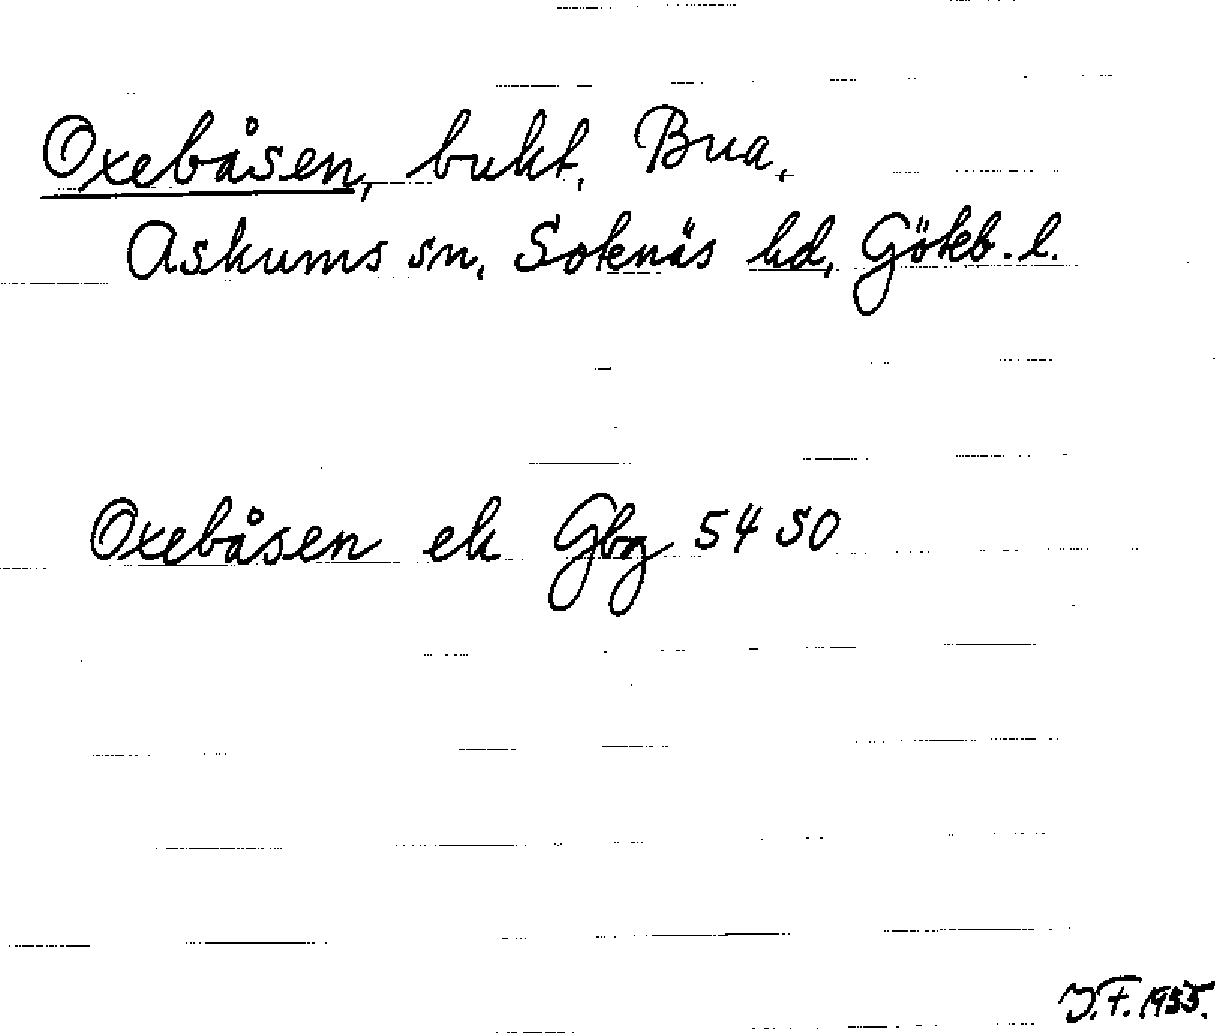 Oxebåsen, bukt, Bua,
Askums sn, Sotenäs hd, Göteb. l.
Oxebåsen ek Gbg 54 SO
J.F. 1935.